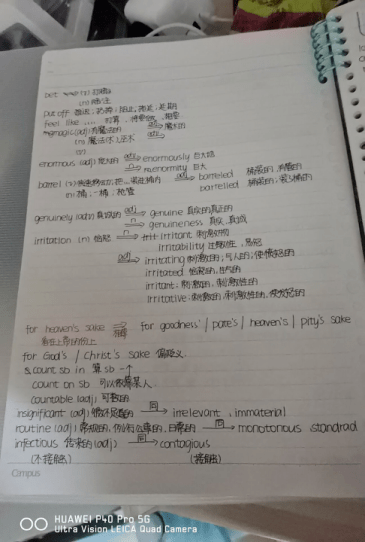 bet
(n) 赌注
put off 推迟; 扔掉; 阻止, 拖延; 延期
feel like .... 打算,
magic (adj) 有魔法的
(n) 魔法
enormous (adj) 庞大的 adv→ enormously 巨大地
n→ enormity 巨大
barrel adj→ barreled 桶装的
(n) 桶; 一桶, 枪管 barrelled 桶装的
genuinely (adv) 真诚的 adj→ genuine 真实的真正的
n→ genuineness 真实, 真诚
irritation (n) 恼怒 n→ irritant 刺激物
irritability 过敏性, 易怒
adj→ irritating 刺激的; 气人的; 使愤怒的
irritated 恼怒的, 生气的
irritant: 刺激的, 刺激性的
irritative: 刺激的, 刺激性的, 使发怒的
for heaven's sake for goodness' / pete's / heaven's / pity's sake
看在上帝的份上
for God's / Christ's sake
& count sb in 算 sb 一个
count on sb 可以依靠某人
countable (adj) 可数的
insignificant (adj) 微不足道的 同→ irrelevant, immaterial
routine (adj) 常规的, 例行公事的, 日常的 同→ monotonous standrad
infectious 传染的 (adj) 同→ contagious
(不接触) (接触)
Campus
HUAWEI P40 Pro 5G
Ultra Vision LEICA Quad Camera